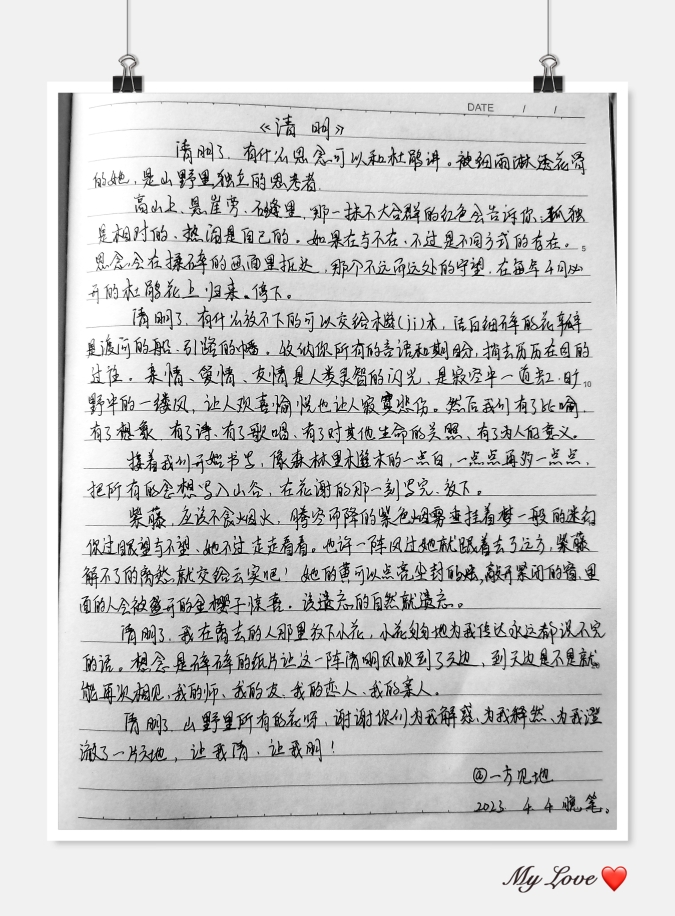 DATE / /
《清明》
清明了，有什么思念可以和杜鹃讲。被细雨淋透花骨
的她，是山野里独立的思考者。
高山上、悬崖旁、石缝里，那一抹不大合群的红色会告诉你，孤独
是相对的、热闹是自己的。如果在与不在、不过是不同方式的存在。 5
思念会在揉碎的画面里抵达，那个不远而远处的守望，在每年4月必
开的杜鹃花上归来、停下。
清明了，有什么放不下的可以交给木(jì)木，洁白细碎的花瓣
是渡河的船、引路的幡。收纳你所有的言语和期盼，捎去历历在目的
过往。亲情、爱情、友情是人类灵智的闪光，是寂空中一道虹、旷 10
野中的一缕风，让人欢喜愉悦也让人寂寞悲伤。然后我们有了比喻
有了想象、有了诗、有了歌唱、有了对其他生命的关照、有了为人的意义。
接着我们开始书写，像森林里木的一点白，一点点再多一点点，
把所有的念想写入山谷，在花谢的那一刻写完、放下。
紫藤，应该不食烟火，腾空而降的紫色烟雾查挂着梦一般的迷幻
你过眼望与不望、她不过走走看看。也许一阵风过她就跟着去了远方，紫藤
解不了的离愁就交给云实吧！她的黄可以点亮尘封的，敲开紧闭的窗、里
面的人会被盛开的金樱子惊喜。该遗忘的自然就遗忘。
清明了，我在离去的人那里放下小花，小花匆匆地为我传达永远都说不完
的话。想念是碎碎的纸片让这一阵清明风吹到了天边，到天边是不是就
能再次相见，我的师、我的友、我的恋人、我的亲人。
清明了，山野里所有的花呀，谢谢你们为我解惑、为我释然、为我澄
澈了一片天地，让我清、让我明！
@一方见地
2023 4 4 晚笔。
My Love